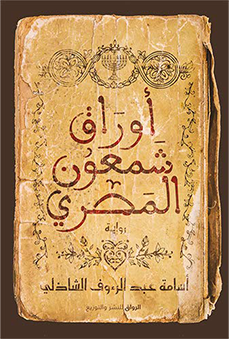 أوراق
شمعون
المصري
رواية
أسامة عبد الرءوف الشاذلي
الرواق للنشر والتوزيع